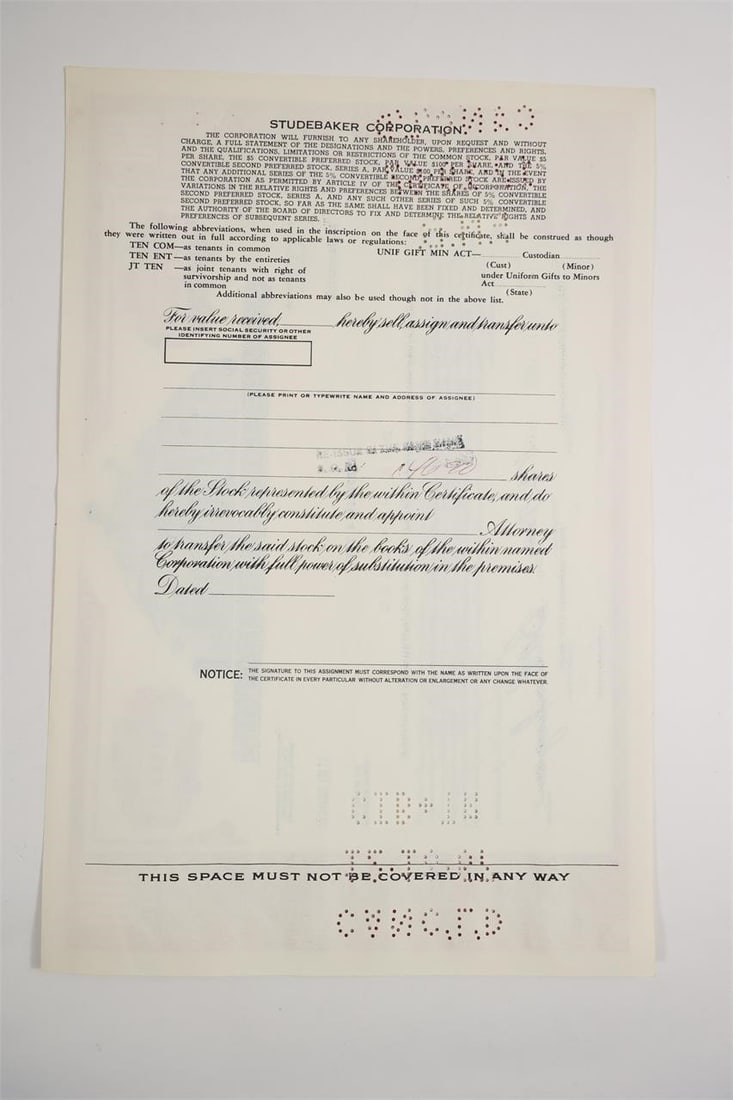 STUDEBAKER CORPORATION
THE CORPORATION WILL FURNISH TO ANY SHAREHOLDER, UPON REQUEST AND WITHOUT
CHARGE, A FULL STATEMENT OF THE DESIGNATIONS AND THE POWERS, PREFERENCES AND RIGHTS,
AND THE QUALIFICATIONS, LIMITATIONS OR RESTRICTIONS OF THE COMMON STOCK, PAR VALUE $5
PER SHARE, THE $5 CONVERTIBLE PREFERRED STOCK, PAR VALUE $100 PER SHARE, AND THE 5%
CONVERTIBLE SECOND PREFERRED STOCK, SERIES A, PAR VALUE $100 PER SHARE, AND IN THE EVENT
THAT ANY ADDITIONAL SERIES OF THE 5% CONVERTIBLE SECOND PREFERRED STOCK ARE ISSUED BY
THE CORPORATION AS PERMITTED BY ARTICLE IV OF THE CERTIFICATE OF INCORPORATION, THE
VARIATIONS IN THE RELATIVE RIGHTS AND PREFERENCES BETWEEN THE SHARES OF 5% CONVERTIBLE
SECOND PREFERRED STOCK, SERIES A, AND ANY SUCH OTHER SERIES OF SUCH 5% CONVERTIBLE
SECOND PREFERRED STOCK, SO FAR AS THE SAME SHALL HAVE BEEN FIXED AND DETERMINED, AND
THE AUTHORITY OF THE BOARD OF DIRECTORS TO FIX AND DETERMINE THE RELATIVE RIGHTS AND
PREFERENCES OF SUBSEQUENT SERIES.
The following abbreviations, when used in the inscription on the face of this certificate, shall be construed as though
they were written out in full according to applicable laws or regulations:
TEN COM—as tenants in common UNIF GIFT MIN ACT— Custodian
TEN ENT—as tenants by the entireties (Cust) (Minor)
JT TEN —as joint tenants with right of under Uniform Gifts to Minors
survivorship and not as tenants Act
in common (State)
Additional abbreviations may also be used though not in the above list.
For value received, hereby sell, assign and transfer unto
PLEASE INSERT SOCIAL SECURITY OR OTHER
IDENTIFYING NUMBER OF ASSIGNEE
(PLEASE PRINT OR TYPEWRITE NAME AND ADDRESS OF ASSIGNEE)
shares
of the Stock represented by the within Certificate, and do
hereby irrevocably constitute and appoint
Attorney
to transfer the said stock on the books of the within named
Corporation with full power of substitution in the premises.
Dated
NOTICE: THE SIGNATURE TO THIS ASSIGNMENT MUST CORRESPOND WITH THE NAME AS WRITTEN UPON THE FACE OF
THE CERTIFICATE IN EVERY PARTICULAR WITHOUT ALTERATION OR ENLARGEMENT OR ANY CHANGE WHATEVER.
THIS SPACE MUST NOT BE COVERED IN ANY WAY